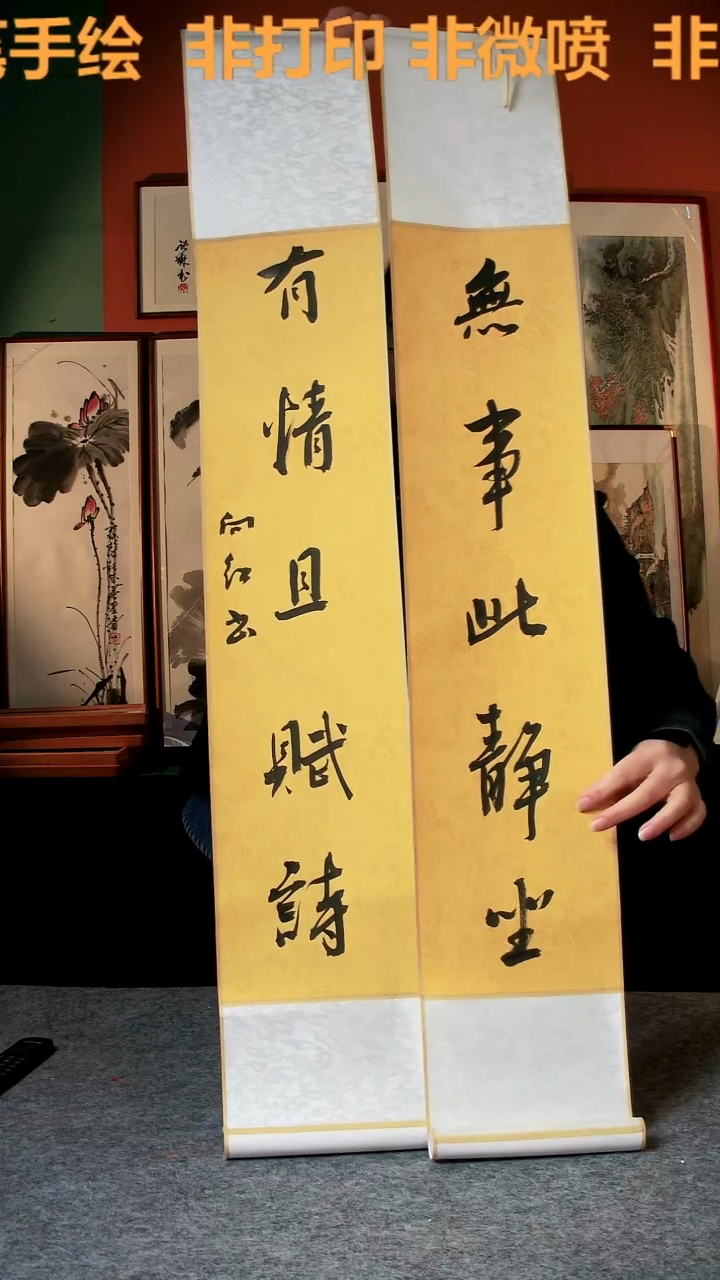 手绘 非打印 非微喷 非
無事此靜坐
有情且賦詩
向红书